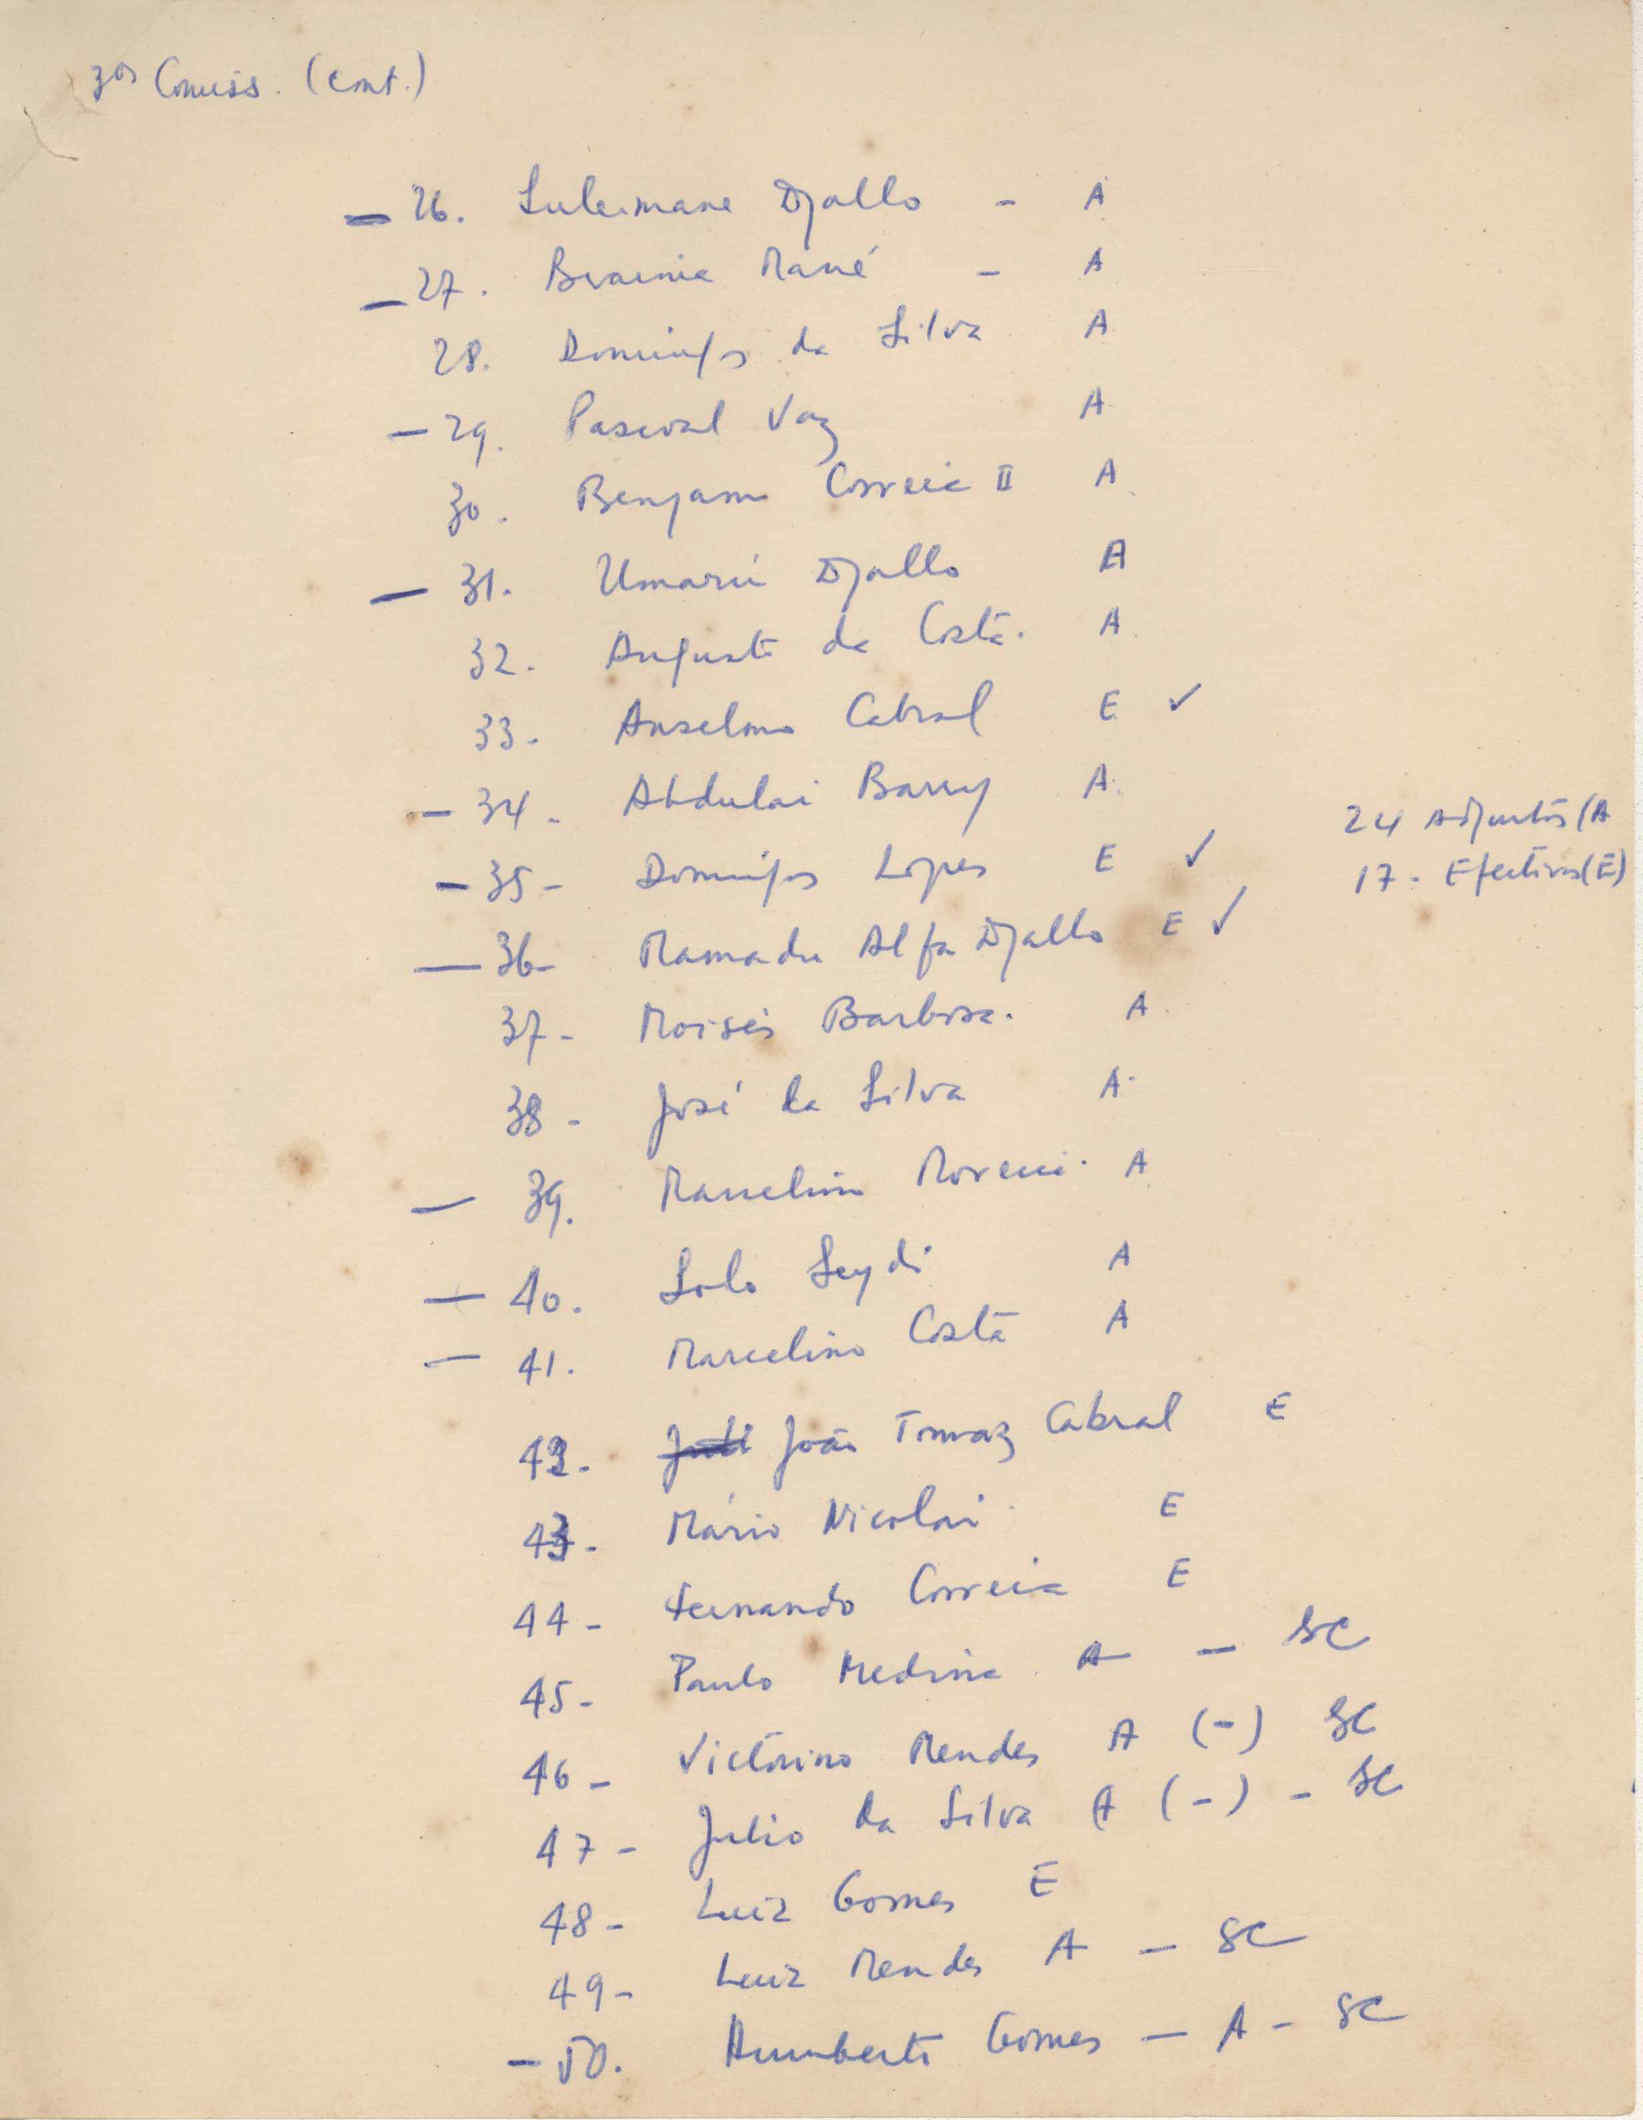 3os Comiss. (cont.)
— 26. Suleimane Djallo - A
— 27. Braima Mané - A
28. Domingos da Silva A
— 29. Pascoal Vaz A
30. Benjamo Correia II A
— 31. Umarú Djallo A
32. Augusto da Costa. A
33- Anselmo Cabral E ✓
— 34- Abdulai Barry A
— 35- Domingos Lopes E ✓
— 36- Mamadu Alfa Djallo E ✓
24 Adjuntos (A
17- Efectivos (E)
37- Moisés Barbosa. A
38- José da Silva A
— 39. Marcelino Moreira. A
— 40. Solo Seydi A
— 41. Marcelino Costa A
42. João Tomaz Cabral E
43- Mário Nicolai E
44- Fernando Correia E
45- Paulo Medina A — SC
46- Victorino Mendes A (-) SC
47- Julio da Silva A (-) - SC
48- Luiz Gomes E
49- Luiz Mendes A — SC
— 50. Humberto Gomes — A - SC